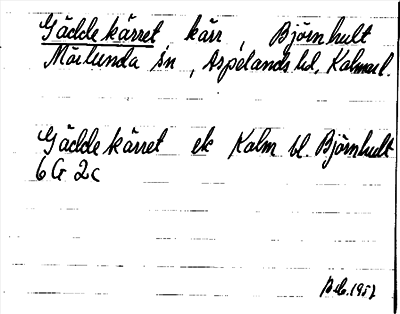 Gäddekärret, kärr, Björnhult
Mörlunda sn, Aspelands hd, Kalmar l.
Gäddekärret ek Kalm bl. Björnhult
6G 2c
1957